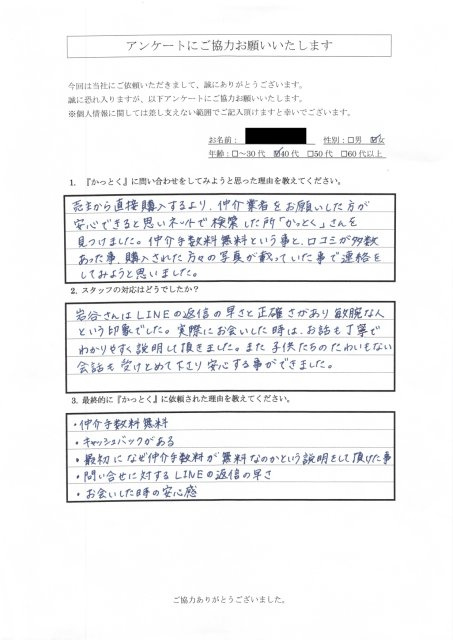 アンケートにご協力お願いいたします
今回は当社にご依頼いただきまして、誠にありがとうございます。
誠に恐れ入りますが、以下アンケートにご協力お願いいたします。
※個人情報に関しては差し支えない範囲でご記入頂けますと幸いでございます。
お名前： 性別：□男 ☑女
年齢：□～30代 ☑40代 □50代 □60代以上
1. 『かっとく』に問い合わせをしてみようと思った理由を教えてください。
売主から直接購入するより、仲介業者をお願いした方が
安心できると思いネットで検索した所「かっとく」さんを
見つけました。仲介手数料無料という事と、口コミが多数
あった事、購入された方々の写真が載っていた事で連絡を
してみようと思いました。
2. スタッフの対応はどうでしたか？
岩谷さんはLINEの返信の早さと正確さがあり敏腕な人
という印象でした。実際にお会いした時は、お話も丁寧で
わかりやすく説明して頂きました。また子供たちのたわいもない
会話も受けとめて下さり安心する事ができました。
3. 最終的に『かっとく』に依頼された理由を教えてください。
・仲介手数料無料
・キャッシュバックがある
・最初になぜ仲介手数料が無料なのかという説明をして頂けた事
・問い合せに対するLINEの返信の早さ
・お会いした時の安心感
ご協力ありがとうございました。